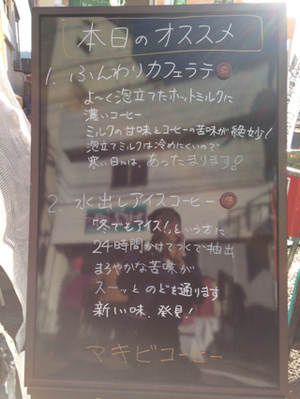 本日のオススメ
1. ふんわりカフェラテ
よ〜く泡立てたホットミルクに
濃いコーヒー
ミルクの甘味とコーヒーの苦味が絶妙!
泡立てミルクは冷めにくいので
寒い日には、あったまります!
2. 水出しアイスコーヒー
"冬でもアイス!"という方に
24時間かけて水で抽出
まろやかな苦味が
スーッとのどを通ります
新しい味、発見!
マキビコーヒー